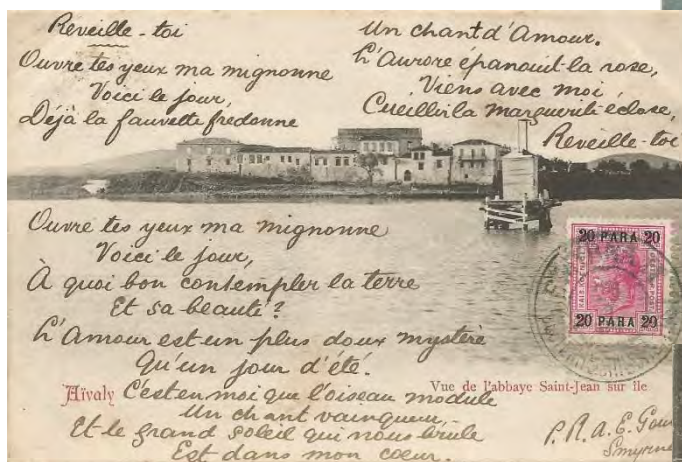 Réveille-toi
Ouvre tes yeux ma mignonne
Voici le jour,
Déjà la fauvette fredonne
Un chant d'Amour.
L'Aurore épanouit la rose,
Viens avec moi
Cueillir la marguerite éclose,
Réveille-toi
Ouvre tes yeux ma mignonne
Voici le jour,
À quoi bon contempler la terre
Et sa beauté?
L'Amour est un plus doux mystère
Qu'un jour d'été.
C'est en moi que l'oiseau module
Un chant vainqueur,
Et le grand soleil qui nous brule
Est dans mon coeur.
Aïvaly
Vue de l'abbaye Saint-Jean sur île
20 PARA 20
20 PARA 20
P.R.A.E.
Smyrne